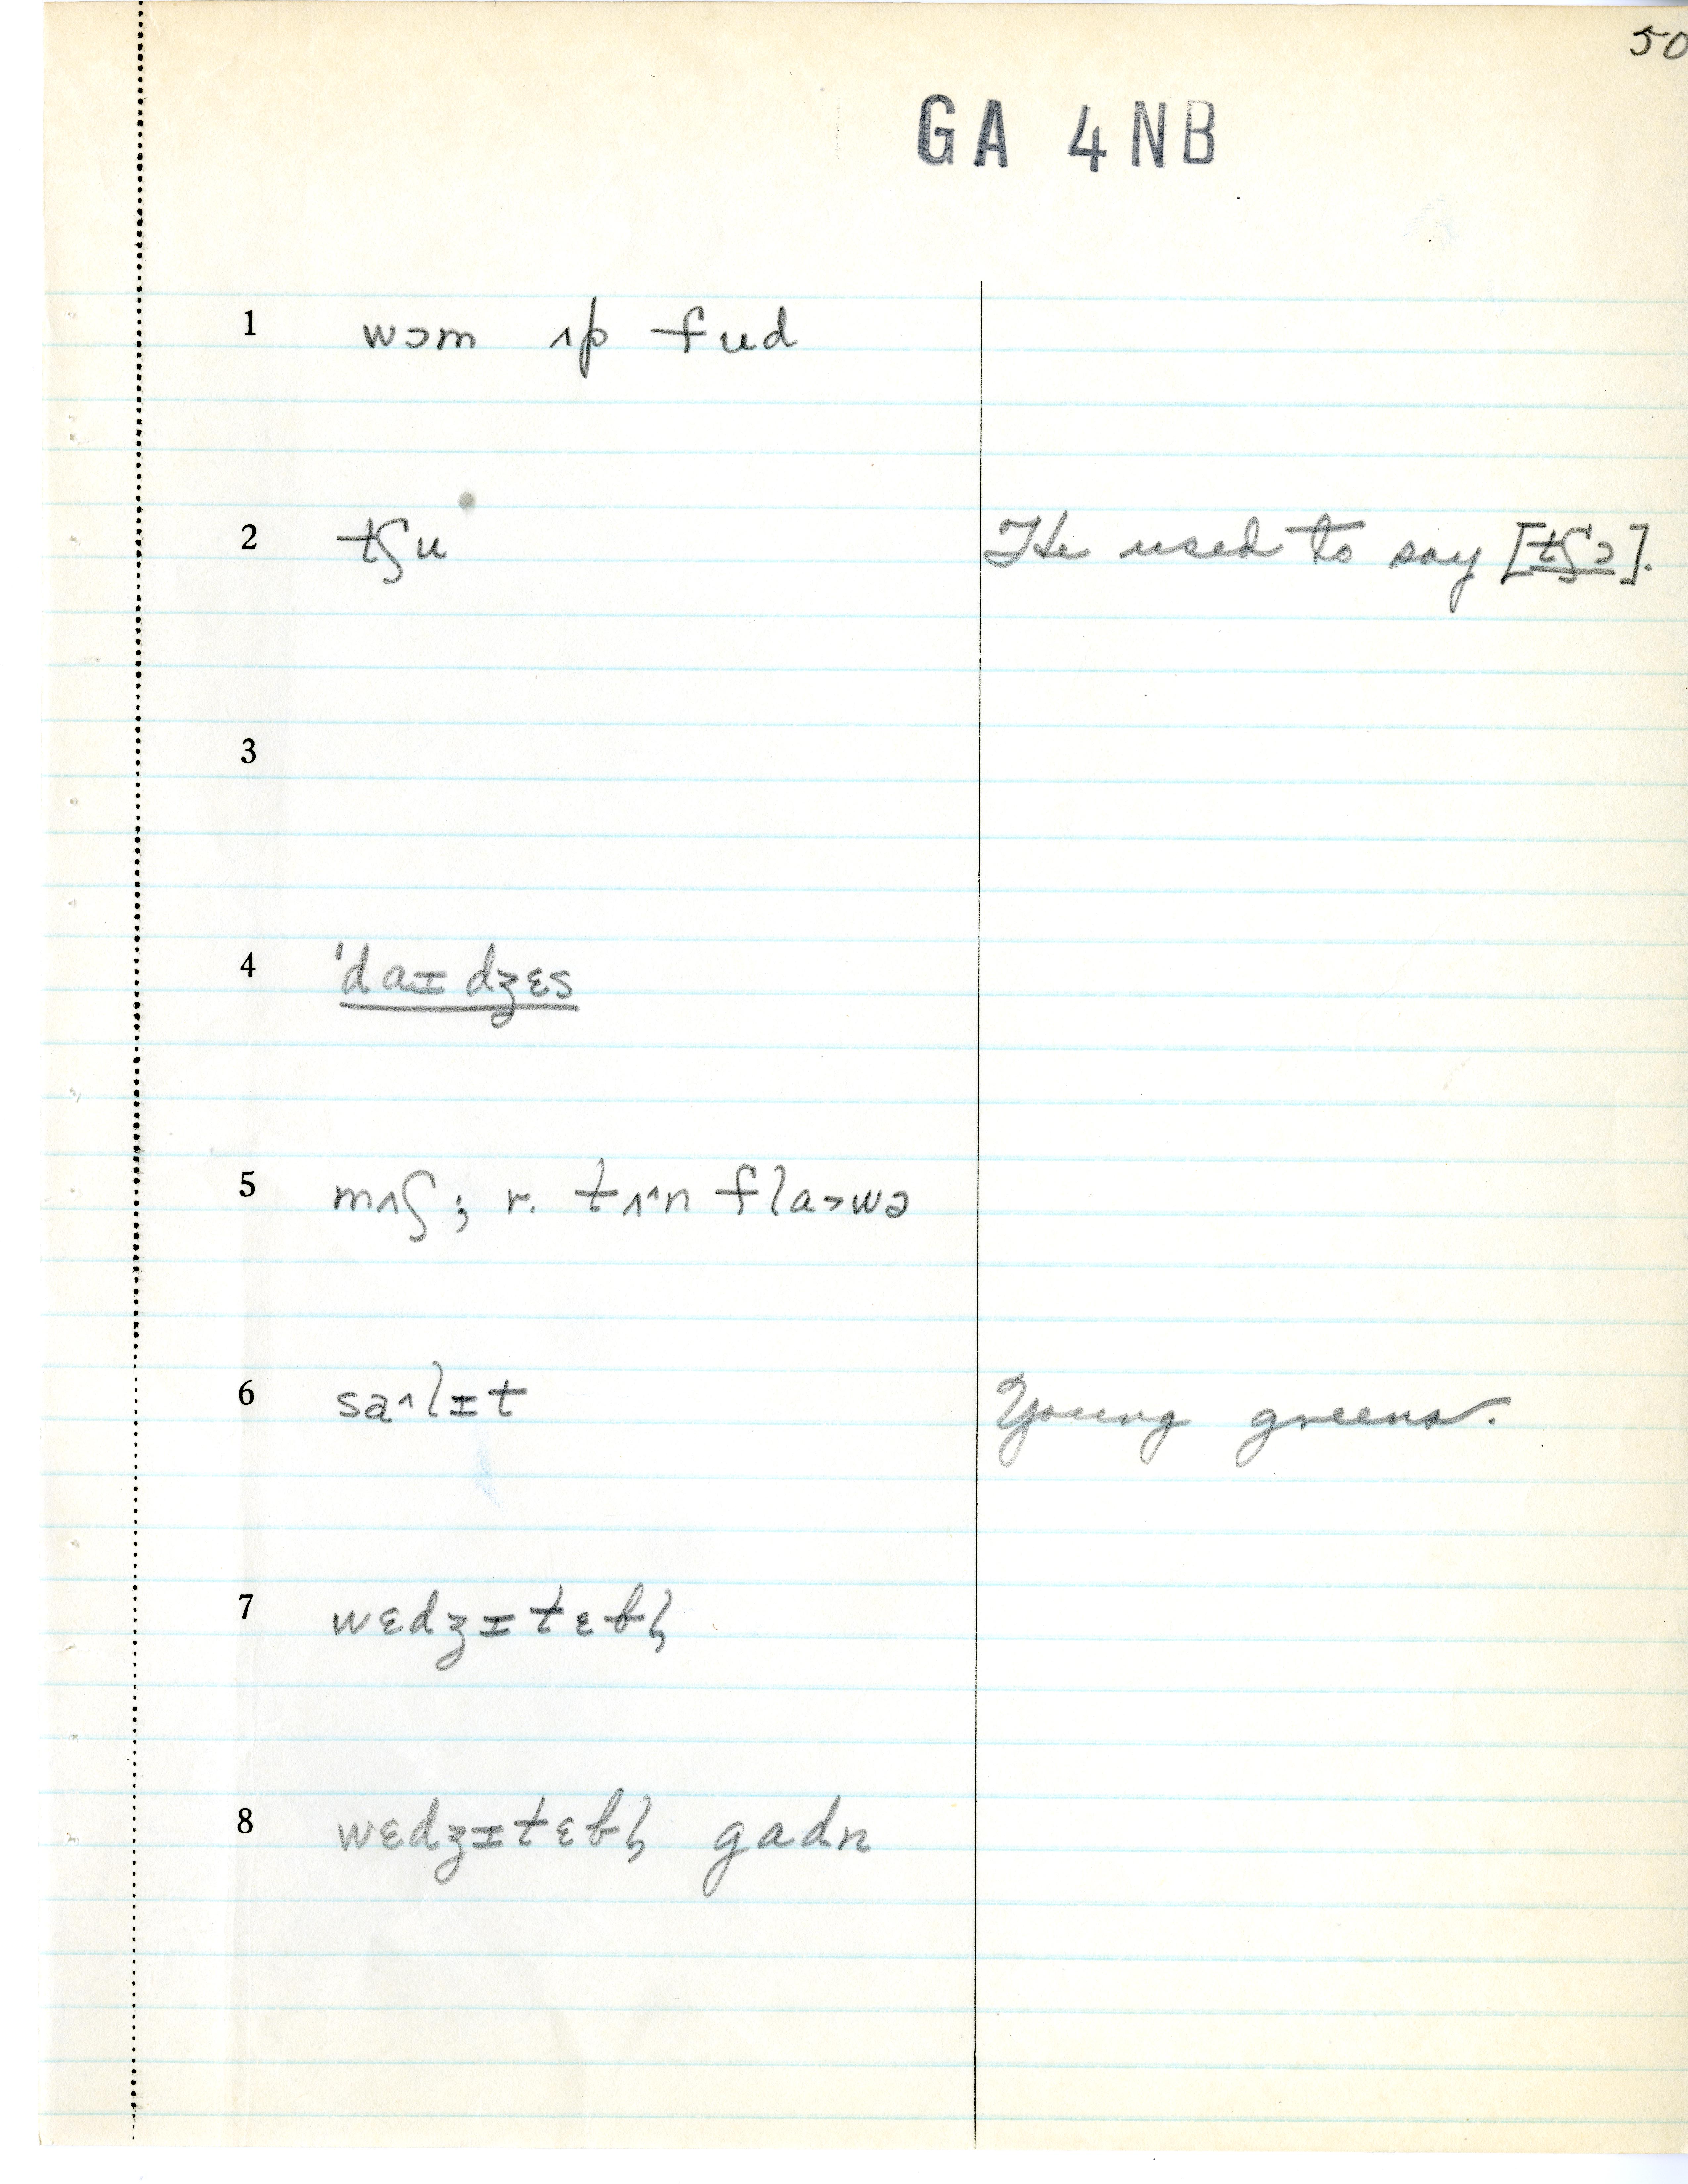 50
GA 4NB
1 wɔm ʌp fud
2 tʃu He used to say [tʃɔ].
3
4 ˈdaɪdʒɛs
5 mʌʃ; r. tɜ˞ʌ^n fla>wə
6 sa^lɪt Young greens.
7 wɛdʒɪtɛbl̩
8 wɛdʒɪtɛbl̩ gadn